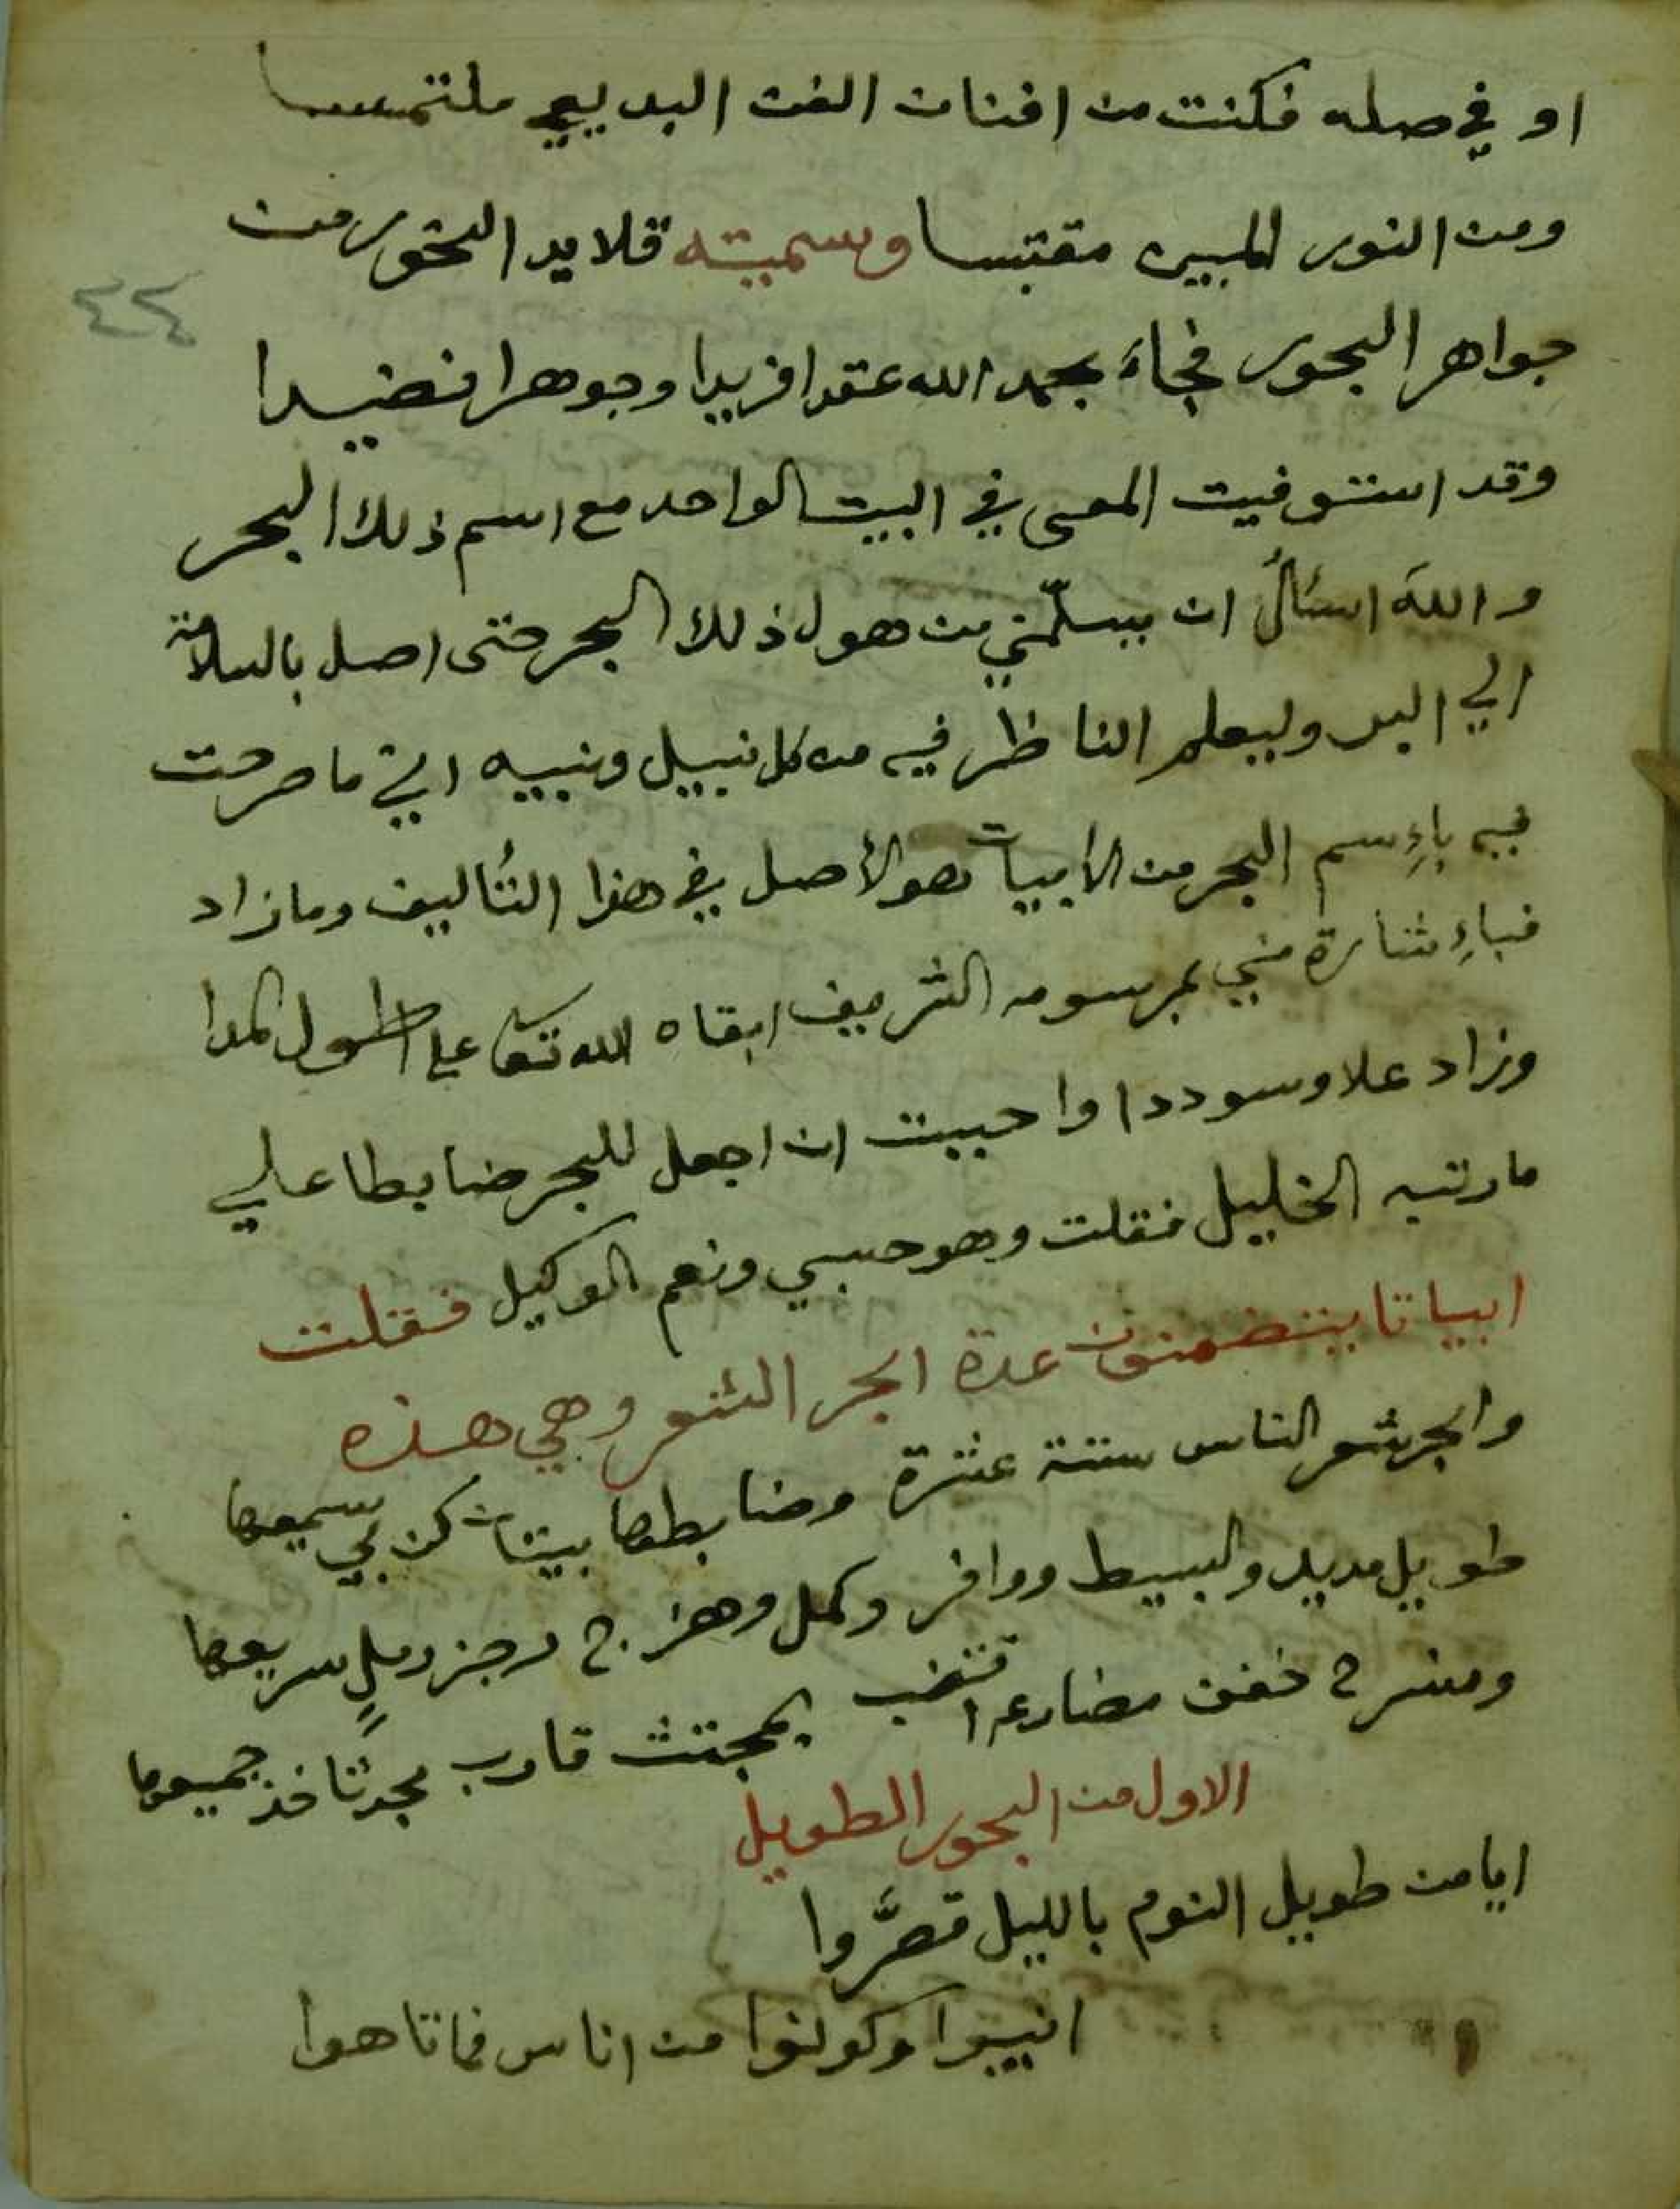 او في صله فكنت من افنان الفن البديع ملتمسا
ومن النور المبين مقتبسا وسميته قلايد النحور من
٤٤
جواهر البحور فجاءَ بحمد الله عقدا فريدا وجوهرا نضيدا
وقد استوفيت المعنى في البيت الواحد مع اسم ذلك البحر
واللهَ اسئالُ ان يسلّمني من هول ذلك البحر حتى اصل بالسلامة
الي البر وليعلم الناظر فيه من كل نبيل ونبيه اني ما صرحت
فيه بإسم البحر من الأبيات هو الأصل في هذا التأليف وما زاد
فبإشارة مني بمرسومه الشريف ابقاه الله تعالى على طول المدا
وزاد علا وسوددا واحببت ان اجعل للبحر ضابطا علي
ما رتبه الخليل فقلت وهو حسبي ونعم الوكيل فقلت
ابياتا يتضمنون عدة ابحر الشعر وهي هذه
وابحر شعر الناس ستة عشرة وضابطها بيتان كن بي سميعها
طويل مديد والبسيط ووافر وكمل وهزج رجز رملٍ سريعها
ومنسرح خفف مضارع اقتضب بمجتث قارب محدثا خذ جميعها
الاول من البحور الطويل
ايا من طويل النوم بالليل قصَّروا
انيبوا وكونوا من اناس فما تاهوا